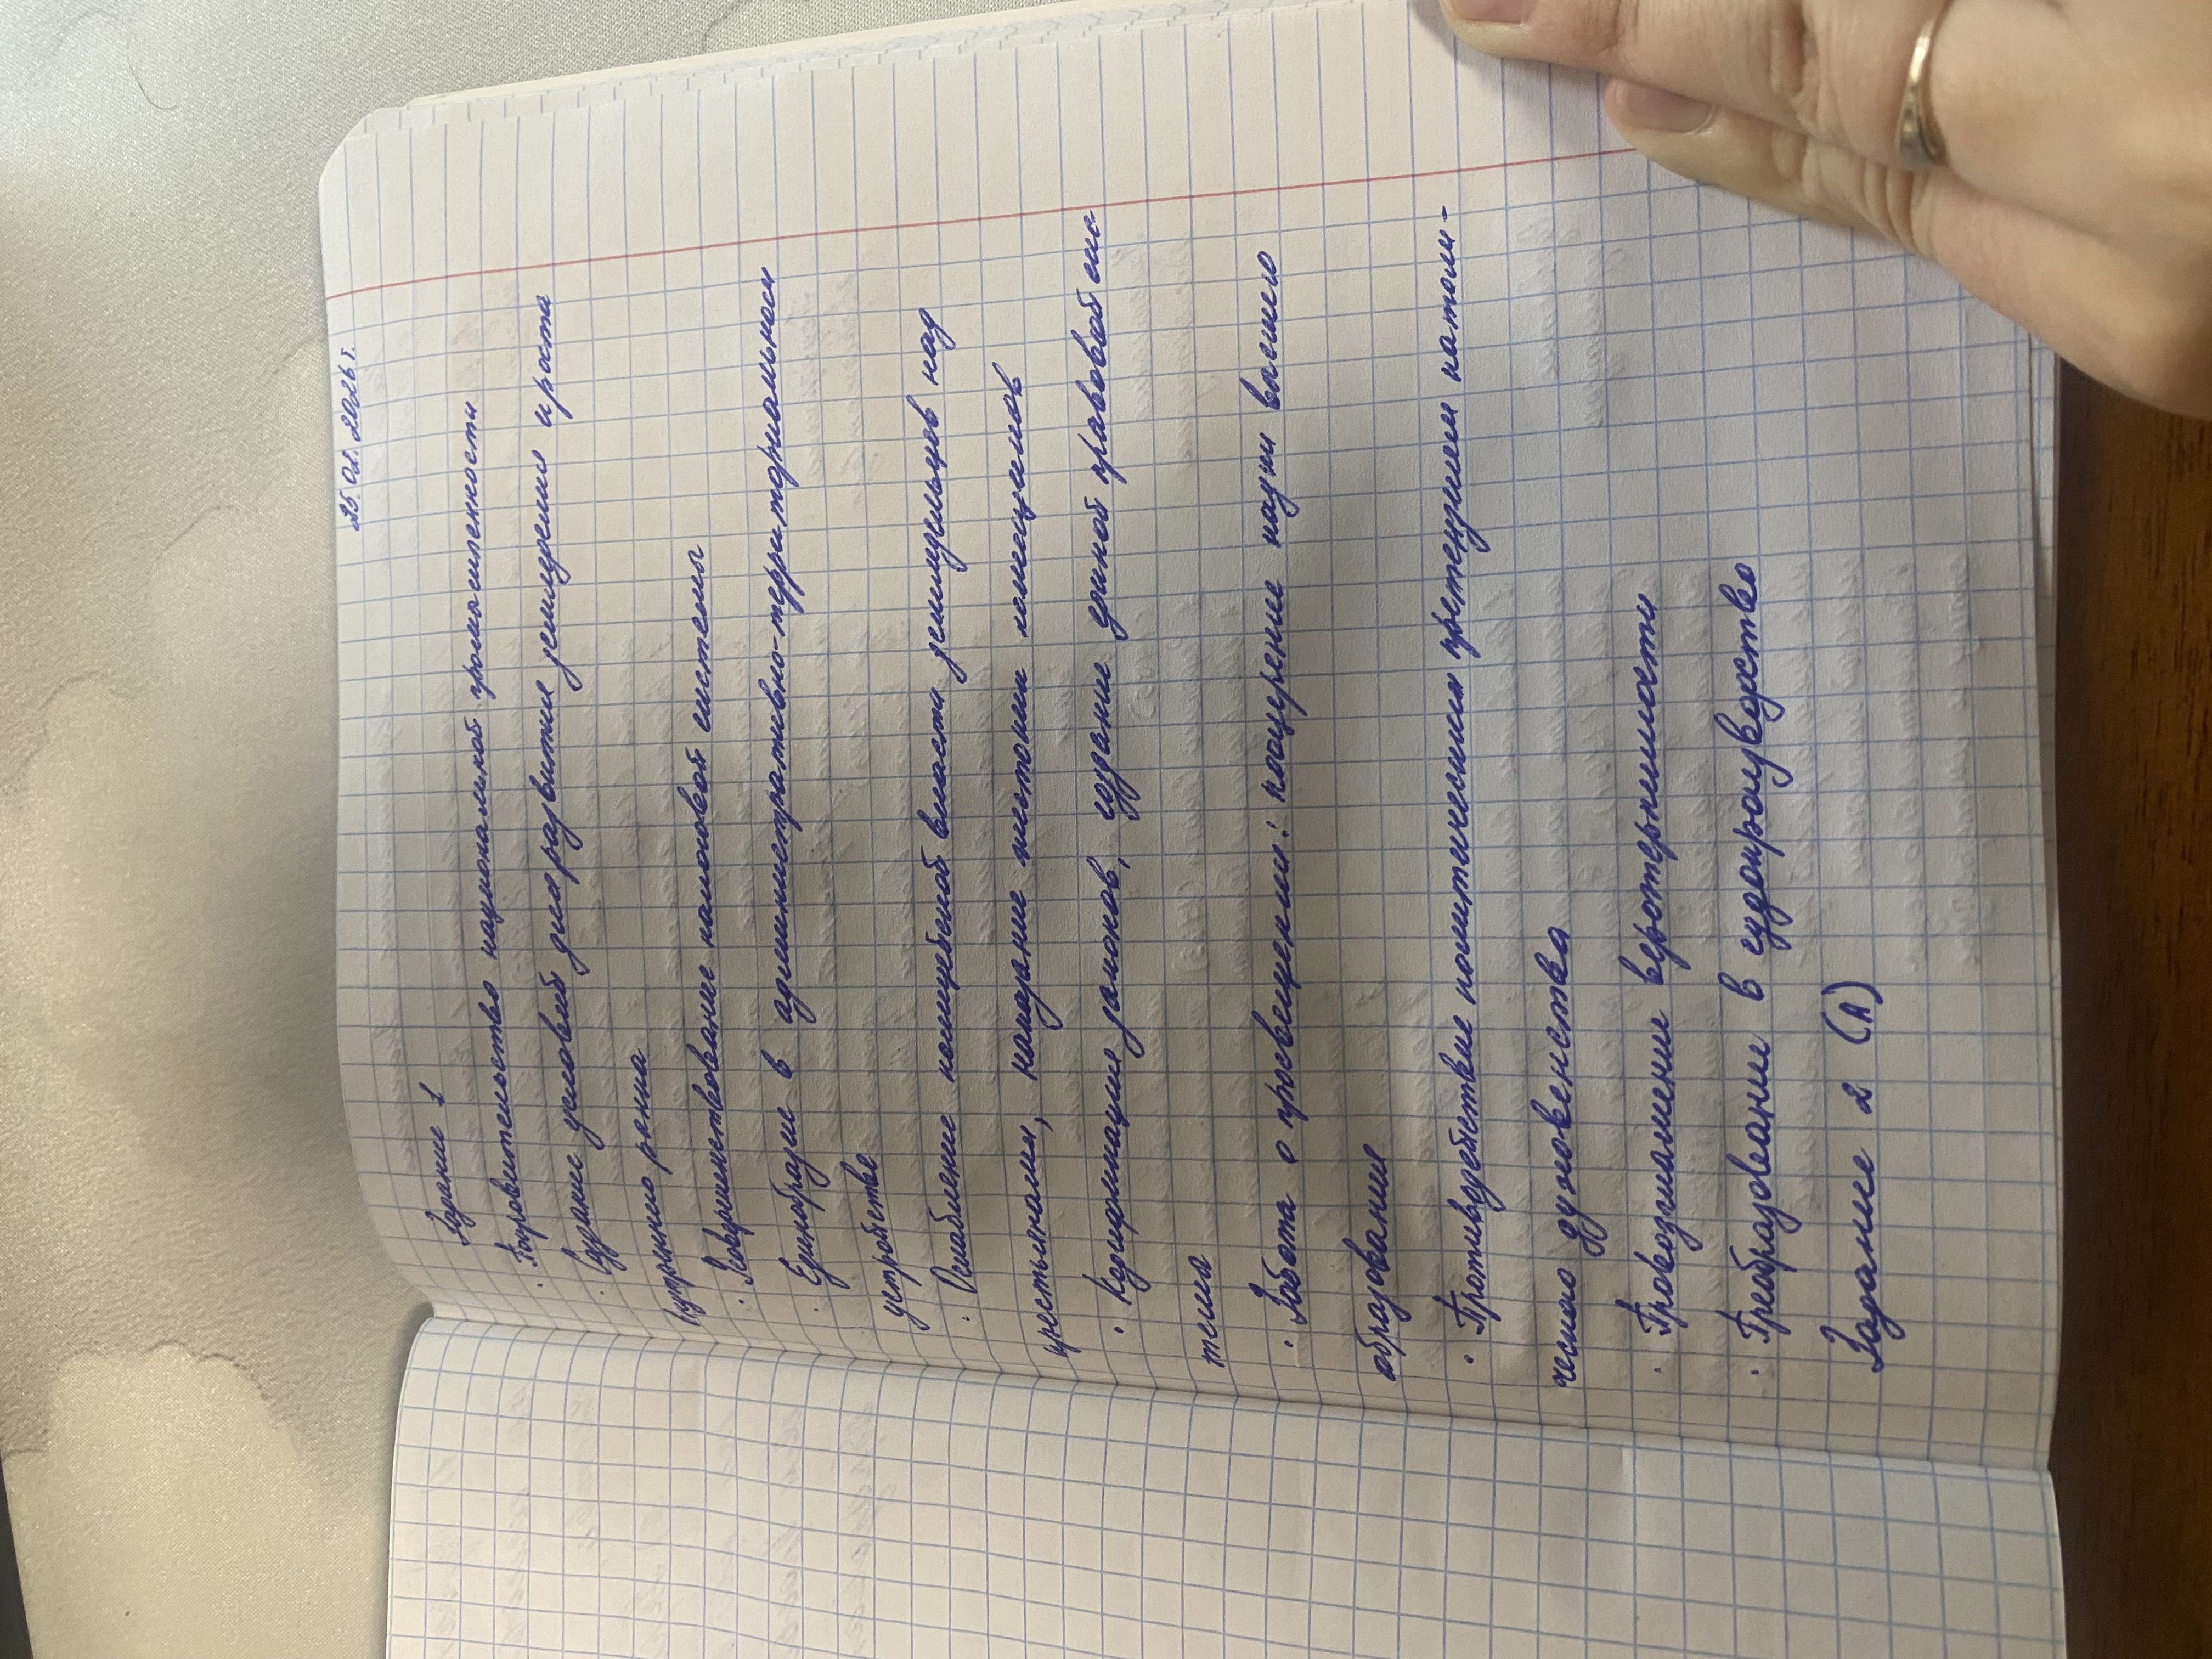 25.02.2026 г.
Задание 1
· Покровительство национальной промышленности
· Создание условий для развития земледелия и роста
внутреннего рынка
· Усовершенствование налоговой системы
· Единообразие в административно-территориальном
устройстве
· Ослабление волшебной власти землевладельцев над
крестьянами, наказание жестоких помещиков
· Кодификация законов, создание единой правовой сис
тема
· Забота о просвещении: поощрение науки высшего
образования
· Противодействие политическим претензиям католи-
ческого духовенства
· Провозглашение веротерпимости
· Преобразование в судопроизводстве
Задание 2 (А)